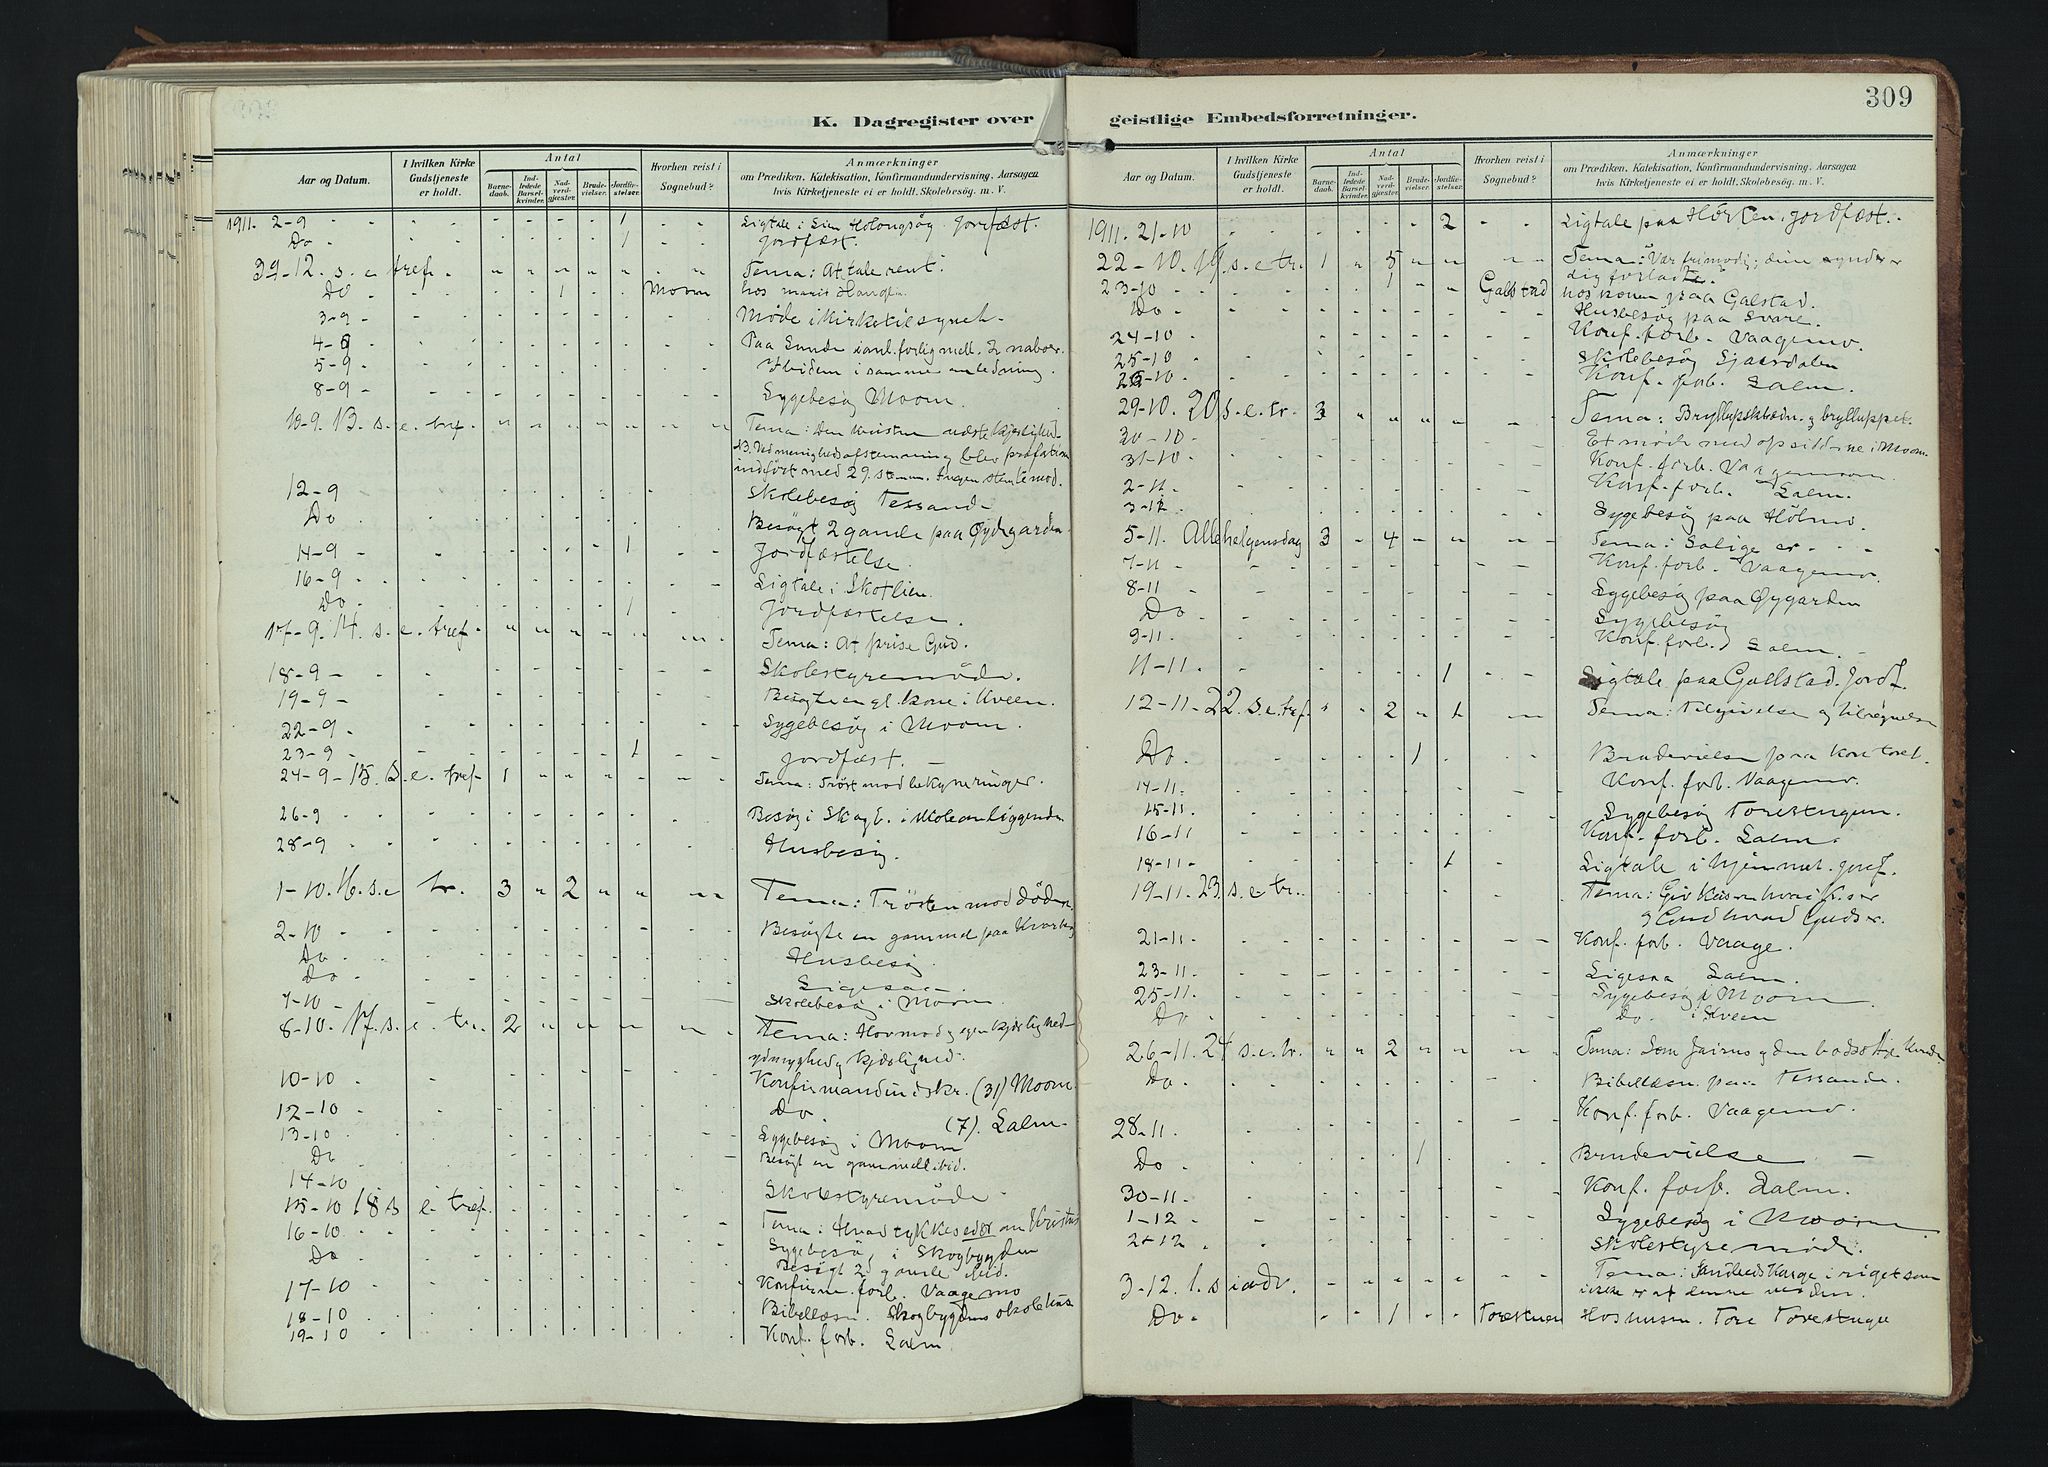 309
K. Dagregister over geistlige Embedsforretninger.
Aar og Datum.
I hvilken Kirke Gudstjeneste er holdt.
Antal
Barnedaab.
Indledede Barselkvinder.
Nadverdgjæster.
Brudevielser.
Jordfæstelser.
Hvorhen reist i Sognebud?
Anmærkninger
om Prædiken. Katekisation, Konfirmandundervisning. Aarsagen
hvis Kirketjeneste ei er holdt. Skolebesøg. m. V.
1911. 2-9 1 Ligtale i Jordfæst.
Do 1 Jordfæst.
12. s. e. tref. Tema: At tale rent.
Do 1 Moom hos Marit
3-9 Møde i Kirketilsynet.
4-9 Paa Sunde i anl. forlig mell. 2 naboer.
5-9 i samme anledning.
8-9 Sygebesøg Moom.
10-9. 13. s. e. tref. Tema: Den kristne næstekjerlighed.
indført med 29 stemm. Ingen stemte mod.
12-9 Skolebesøg Tessand.
Do Besøgt 2 gamle paa Øydegarden.
14-9 1 Jordfæstelse.
16-9 Ligtale i Skotlien.
Do 1 Jordfæstelse.
17-9. 14. s. e. tref. Tema: At prise Gud.
18-9 Skolestyremøde.
19-9 Besøgte en gl. kone i Kveen.
22-9 Sygebesøg i Moom.
23-9 1 Jordfæst.
24-9 15. s. e. tref. 1 Tema: Trøst mod bekymringer.
26-9 Besøg i Skogb. i skoleanliggender
28-9 Husbesøg.
1-10. 16. s. e tr. 3 2 Tema: Trøsten mod døden.
2-10 Besøgte en gammel paa Kvarberg
Do Husbesøg.
Do Ligesaa.
7-10 Skolebesøg i Moom.
8-10. 17. s. e. tr. 2 Tema: Hovmod og egenkjærlighed
ydmyghed og kjærlighed.
10-10 Konfirmandindskr. (31) Moom.
12-10 Do (7). Lalm.
13-10 Sygebesøg i Moom
Do Besøgt en gammel ibid.
14-10 Skolestyremøde
15-10 18 s e. tref. Tema: Hvad tykkes eder om Kristus
16-10 Sygebesøg i Skogbygden
Do Besøgt 2 gamle ibid.
17-10 Konfirm. forb. Vaagemo
18-10 Bibellæsn. Skogbygdens skolehus
19-10 Konf. forb. Lalm
Aar og Datum.
I hvilken Kirke Gudstjeneste er holdt.
Antal
Barnedaab.
Indledede Barselkvinder.
Nadverdgjæster.
Brudevielser.
Jordfæstelser.
Hvorhen reist i Sognebud?
Anmærkninger
om Prædiken. Katekisation, Konfirmandundervisning. Aarsagen
hvis Kirketjeneste ei er holdt. Skolebesøg. m. V.
1911. 21-10 2 Ligtale paa jordfæst.
22-10. 19. s. e. tr. 1 5 Tema: Vær frimodig; dine synder er
dig forladte.
23-10 1 Galstad hos konen paa Galstad.
Do Husbesøg paa Svare.
24-10 Konf. forb. Vaagemo.
25-10 Skolebesøg Sjaardalen
26-10 Konf. forb. Lalm.
29-10. 20 s. e. tr. 3 Tema: Bryllupsklædn. og brylluppet.
30-10 Et møde med opsidderne i Moom
31-10 Konf. forb. Vaagemoom.
2-11 Konf. forb. Lalm.
3-12 Sygebesøg paa Holmo.
5-11. Allehelgensdag 3 4 Tema: Salige er
7-11 Konf. forb. Vaagemo.
8-11 Sygebesøg paa Øygarden
Do Sygebesøg
9-11 Konf. forb. Lalm.
11-11. 1 Ligtale paa Gallstad. Jordf.
12-11. 22. s. e. tref. 2 1 Tema: Tilgivelse og tilregnelse
Do 1 Brudevielse paa kontoret.
14-11. Konf. forb. Vaagemo.
15-11. Sygebesøg Torestugun.
16-11 Konf. forb. Lalm.
18-11 1 Ligtale i hjemmet. Jordf.
19-11. 23 s. e tr. Tema: Giv Keiseren hvad K.s er
og Gud hvad Guds er.
21-11. Konf. forb. Vaage.
23-11 Ligesaa Lalm.
25-11. Sygebesøg i Moom
Do i Kveen
26-11. 24 s. e. tr. 2 Tema: Som Jairus og den blodsottige kvinde
Do Bibellæsn. paa Tessande.
28-11. Konf. forb. Vaagemo.
Do 1 Brudevielse
30-11. Konf. forb. Lalm.
1-12 Sygebesøg i Moom
2-12 Skolestyremøde.
3-12. 1. s i adv. Tema: Sandheds Konge i riget som
ikke er af denne verden.
Do 1 Torestuen Hos husm. Tore Torestugu